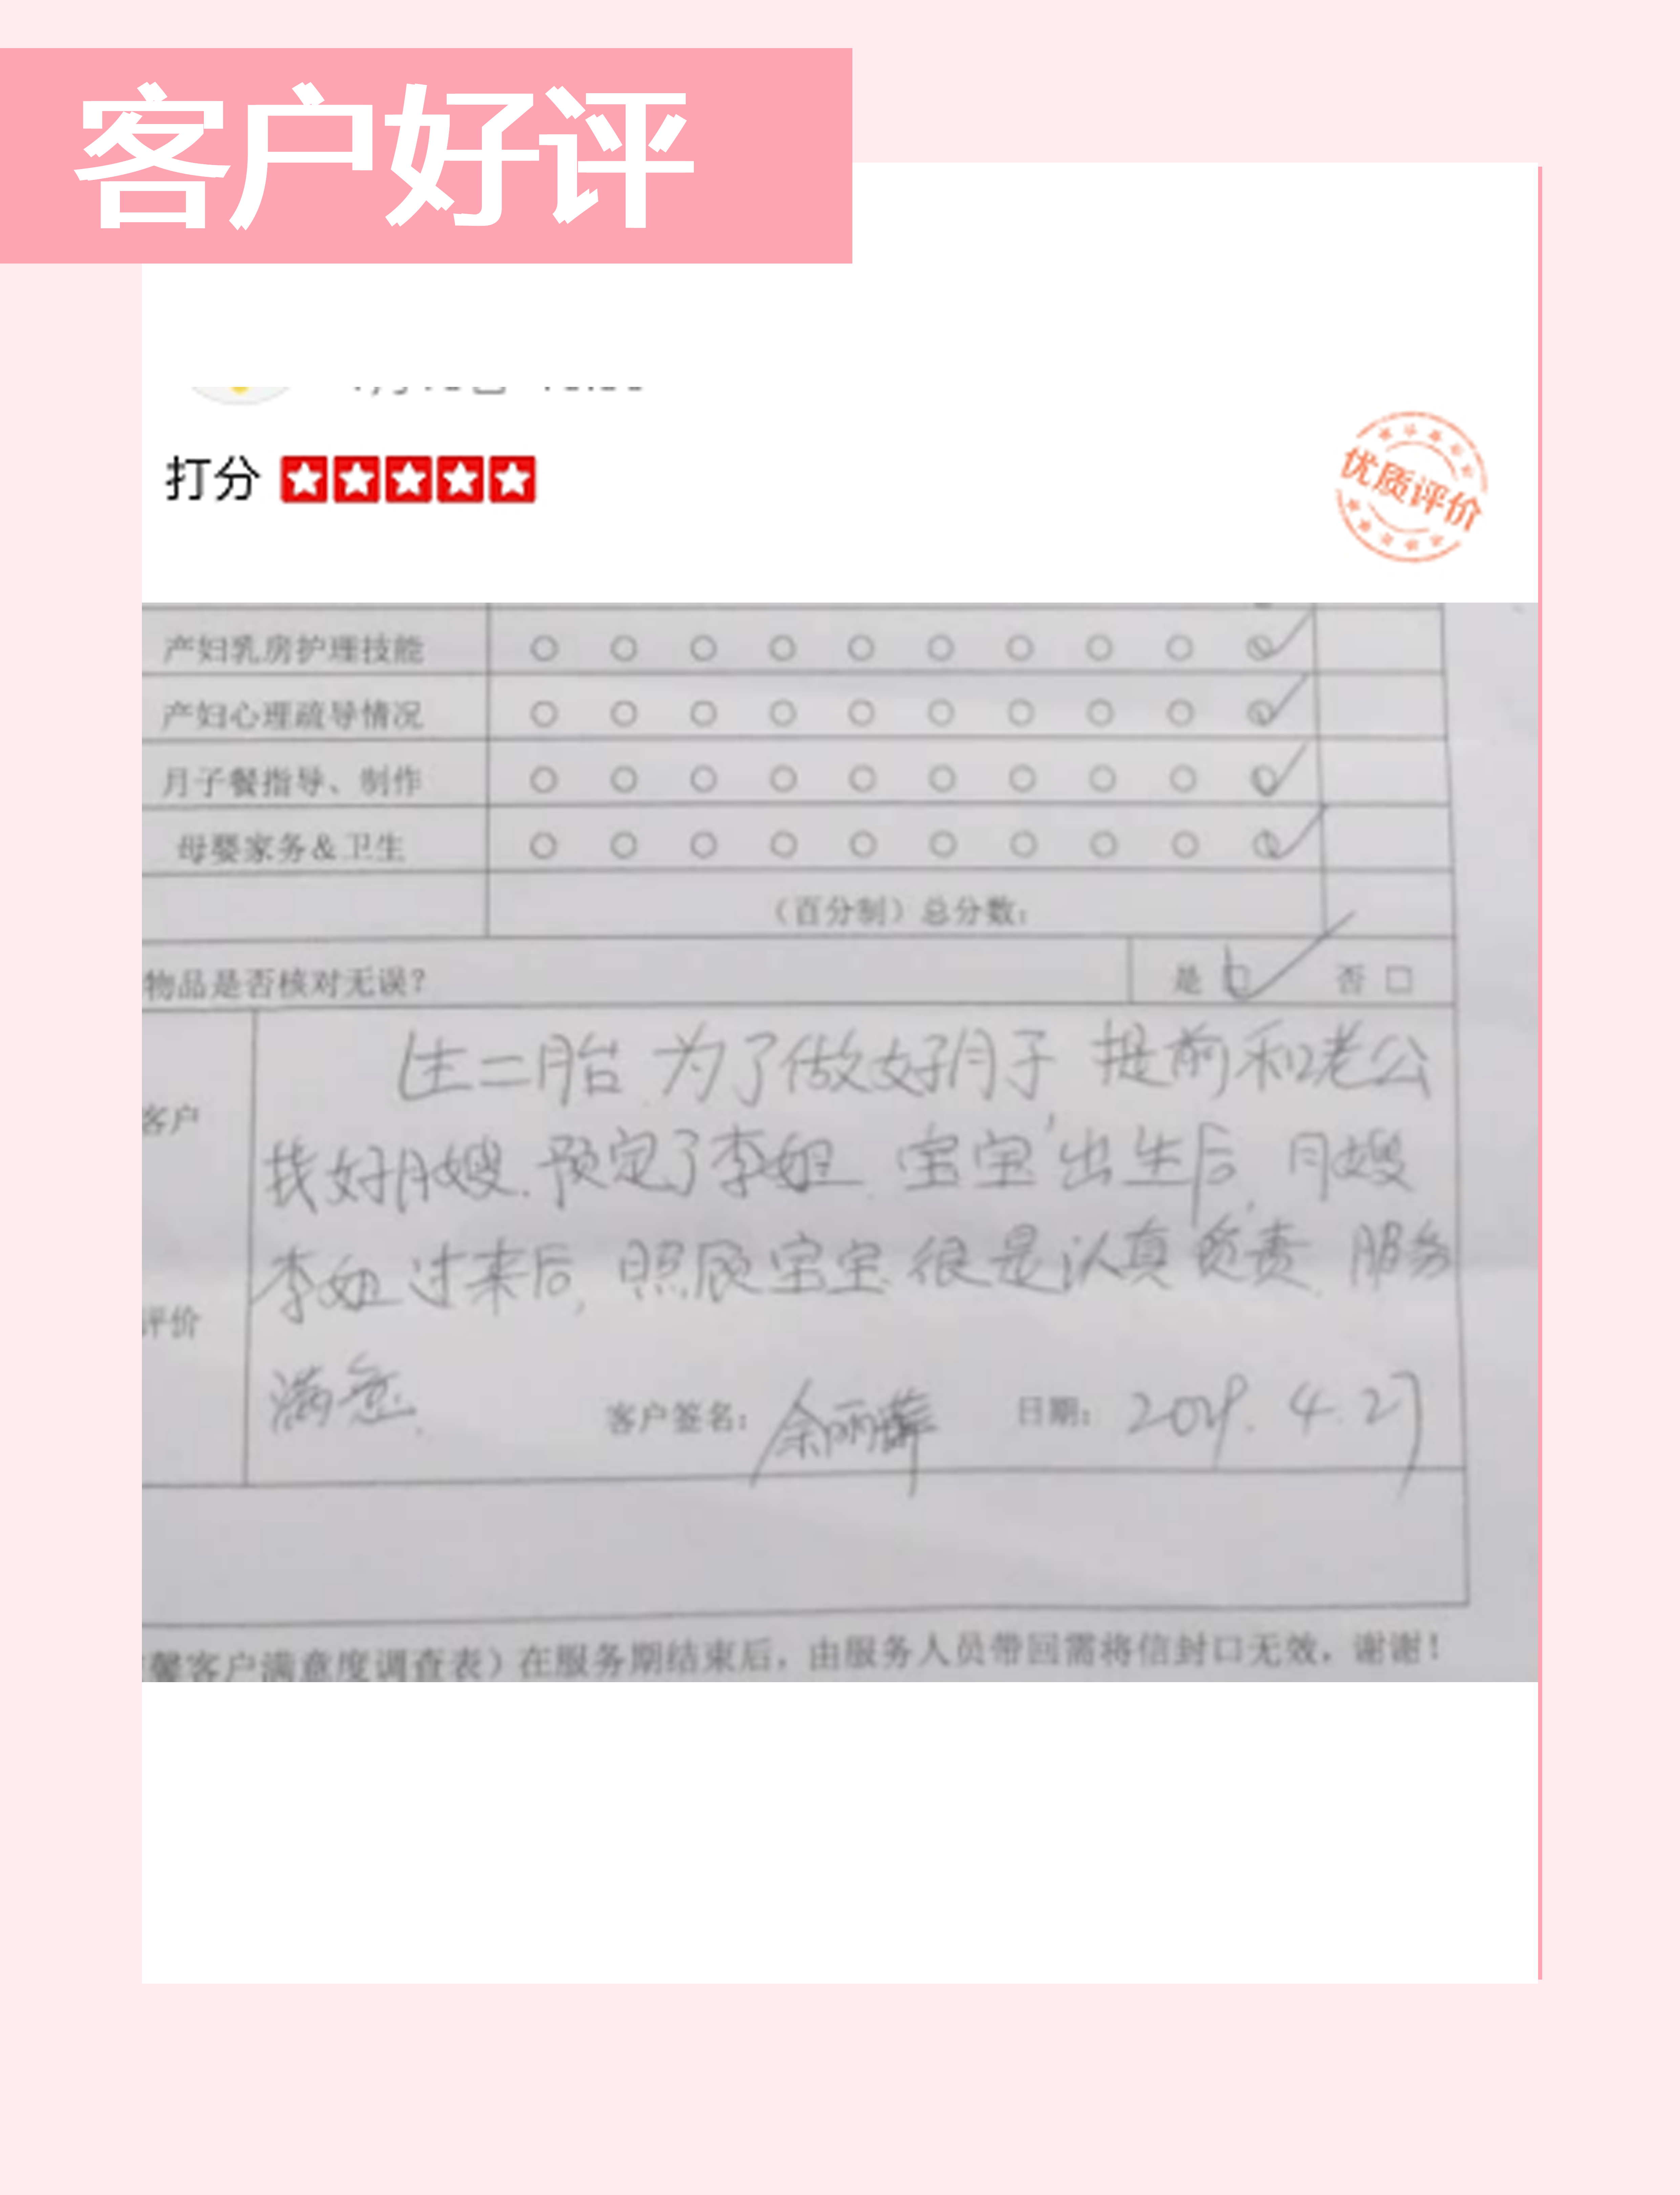 客户好评
打分
优质评价
产妇乳房护理技能
产妇心理疏导情况
月子餐指导、制作
母婴家务&卫生
（百分制）总分数：
物品是否核对无误? 是 否
客户
评价
生二胎.为了做好月子 提前和老公
找好月嫂.预定了李姐.宝宝出生后,月嫂
李姐过来后,照顾宝宝很是认真负责.服务
满意.
客户签名: 余丽 日期: 2019.4.27
馨客户满意度调查表）在服务期结束后，由服务人员带回需将信封口无效，谢谢！